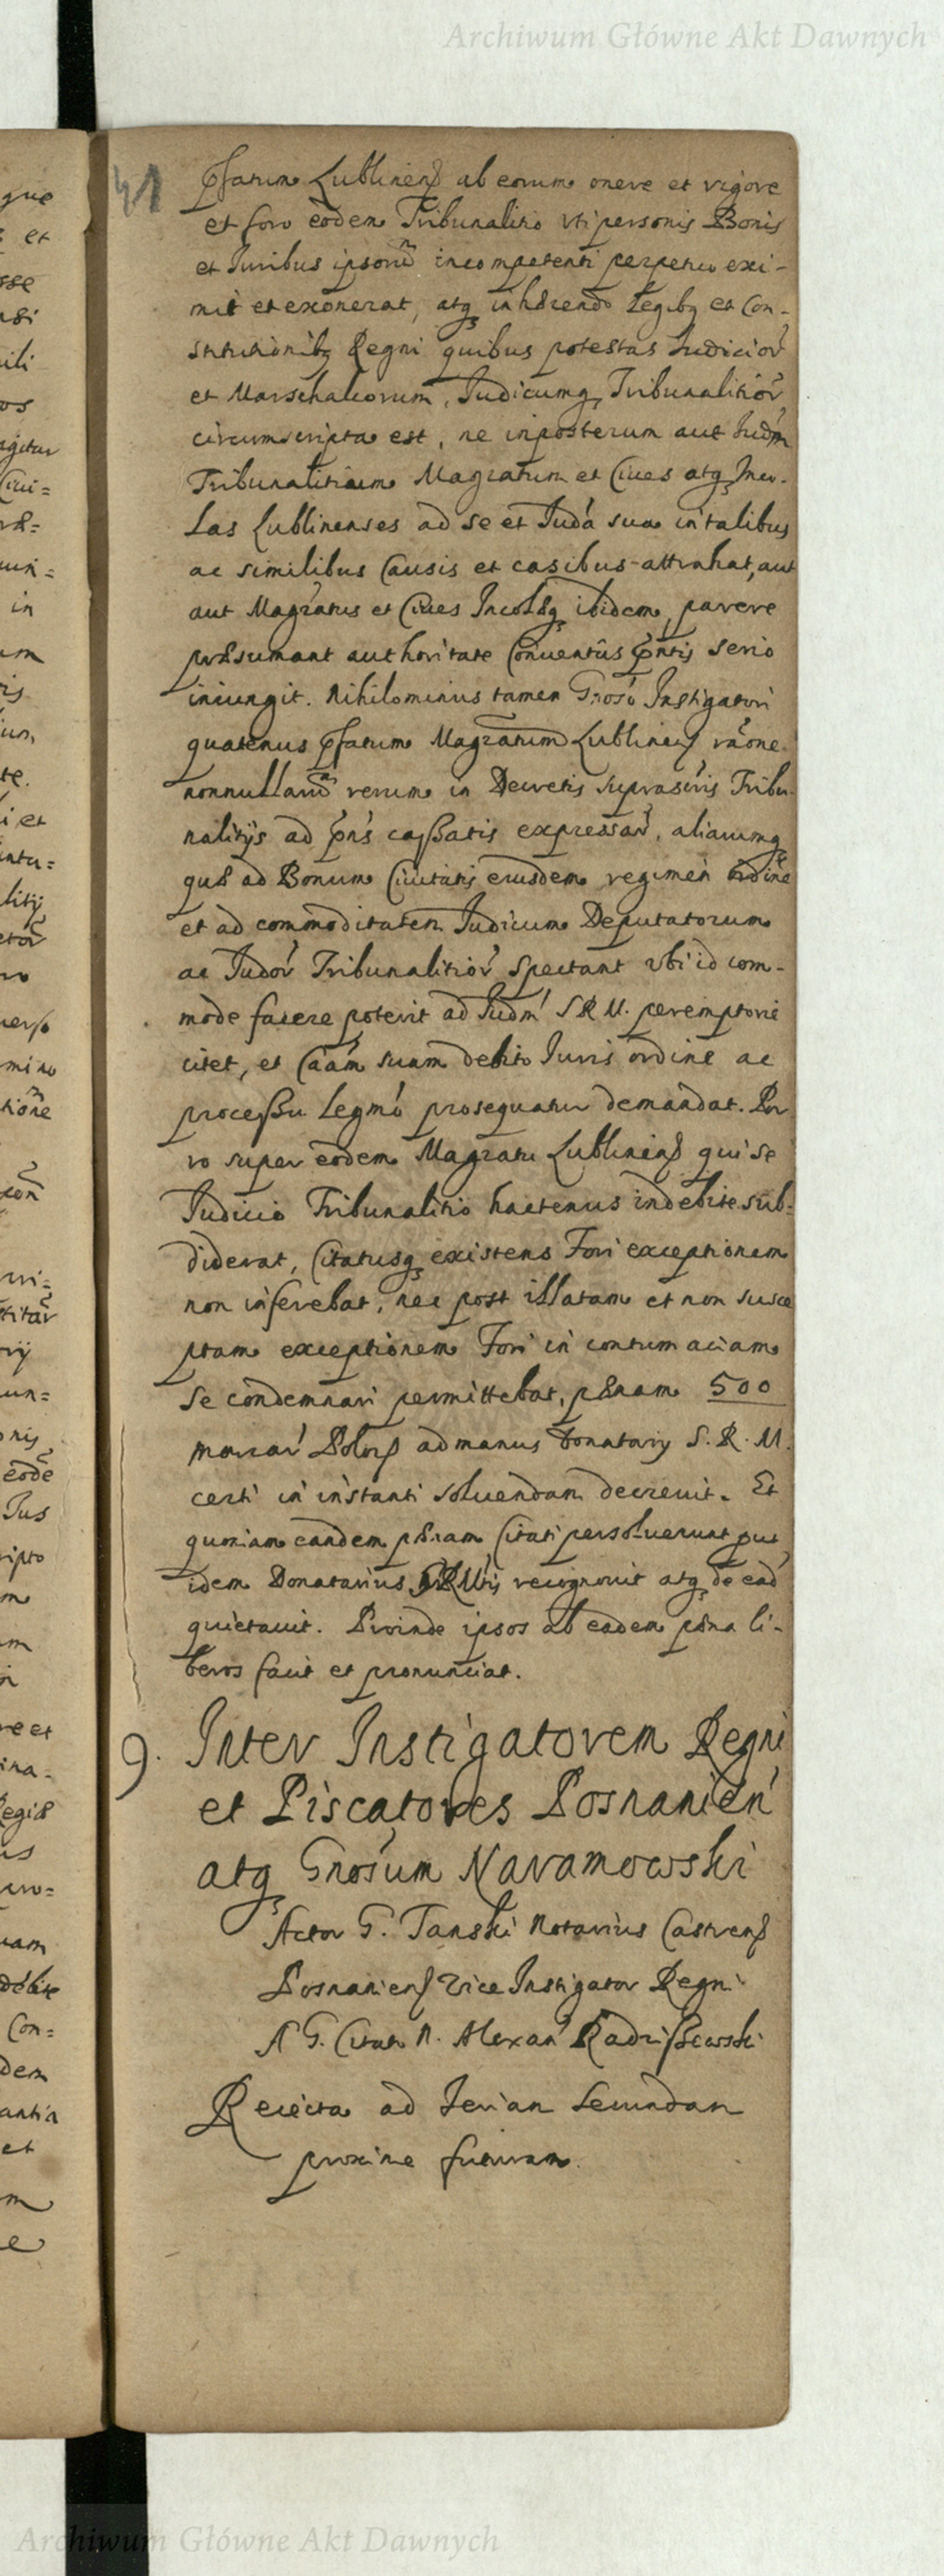 Archiwum Główne Akt Dawnych
41
Pfatum Lublinens ab eorum onere et vigore
et foro eodem Tribunalitio vti personis Bonis
et Iuribus ipsorũ incompetenti perpetuo exi-
mit et exonerat, atq inhærendo Legibq et Con-
stitutionibq Regni quibus potestas Iudicior
et Marschalcorum, Iudicumq, Tribunalitior
circumscripta est, ne inposterum aut Iudm
Tribunalitium Magratum et Ciues atq Inco-
las Lublinenses ad se et Iuda sua in talibus
ac similibus Causis et casibus attrahat, aut
aut Magratus et Ciues Incolæq ibidem, parere
præsumant authoritate Conuentûs pntis serio
iniungit. Nihilominus tamen Gnoso Instigatori
quatenus Pfatum Magratum Lublinens raone
nonnullarũ rerum in Decretis suprascris Tribu-
nalitijs ad pns cassatis expressar, aliarumq
quæ ad Bonum Ciuitatis eiusdem regimen ordine
et ad commoditatem Iudicum Deputatorum
ac Iudor Tribunalitior spectant vbi id com-
mode facere poterit ad Iudm S R M. peremptorie
citet, et Caam suam debito Iuris ordine ac
processu Legmo prosequatur demandat. Por
ro super eodem Magratu Lublinens qui se
Iudicio Tribunalitio hactenus indebite sub-
diderat, Citatusq existens Fori exceptionem
non inferebat, nec post illatam et non susce
ptam exceptionem Fori in contumaciam
se condemnari permittebat, pænam 500
marcar Polons ad manus Donatarij S. R. M.
certi in instanti soluendam decreuit. Et
quoniam eandem pænam Citati persoluerunt put
idem Donatarius SRMtis recognouit atq de ead
quietauit. Proinde ipsos ab eadem pæna li-
beros facit et pronunciat.
9. Inter Instigatorem Regni
et Piscatores Posnanien
atq Gnosum Naramowski
Actor G. Tanski Notarius Castrens
Posnaniens Vice Instigator Regni
A G. Citati N. Alexan Radziszewski
Reiecta ad Feriam Secundam
proxime futuram.
Archiwum Główne Akt Dawnych